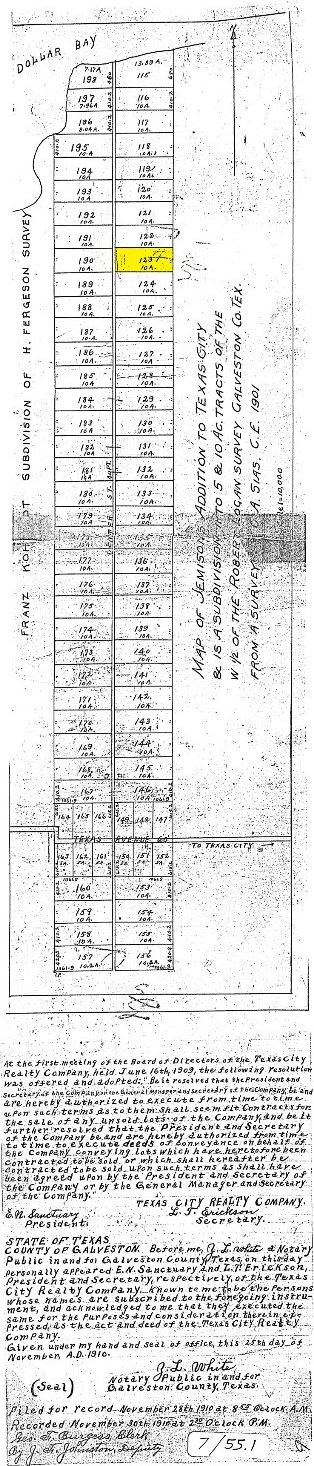 DOLLAR BAY
7.17A. 13.39 A.
198 115
197 116
7.96A 10A
196 117
8.06A. 10A.
195 118
10.A 10A.
194 119
10A. 10A.
193 120
10A. 10A.
192 121
10A. 10A.
191 122
10A. 10A.
190 123
10A. 10A.
189 124
10A. 10A.
188 125
10A. 10A.
187 126
10A. 10A.
186 127
10A. 10A.
185 128
10A. 10A.
184 129
10A. 10A.
183 130
10A 10A.
182 131
10A. 10A.
181 132
10A 10A.
180 133
10A. 10A.
179 134
10A. 10A.
135
177 136
10A. 10A.
176 137
10A. 10A.
175 138
10A. 10A.
174 139
10A. 10A.
173 140
10A. 10A.
172 141
10A. 10A.
171 142
10A. 10A.
170 143
10A. 10A.
169 144
10A. 10A.
168 145
10A. 10A.
167 146
10A. 10A.
164 165 166 149 148 147
TEXAS AVENUE 60
TO TEXAS CITY
163 162 161 150 151 152
160 153
10A. 10A.
159 154
10A. 10A.
158 155
10A. 10A.
157 156
FRANZ KOHFELDT SUBDIVISION OF H. FERGESON SURVEY
MAP OF JEMISON ADDITION TO TEXAS CITY
& IS A SUBDIVISION INTO 5 & 10 AC. TRACTS OF THE
W 1/2 OF THE ROBERT LOGAN SURVEY GALVESTON CO. TEX.
FROM A SURVEY A. SIAS. C.E. 1901
At the first meeting of the Board of Directors of the Texas City
Realty Company, held June 16th, 1909, the following Resolution
was offered and adopted; "Be it resolved that the President and
Secretary of the Company or the General Manager and Secretary of the Company, be and
are hereby authorized to execute from time to time
upon such terms as to them shall seem fit Contracts for
the sale of any unsold lots of the Company, and be it
further resolved that the President and Secretary
of the Company be and are hereby authorized from time
to time to execute deeds of conveyance on behalf of
the Company conveying lots which have heretofore been
contracted to be sold or which shall hereafter be
contracted to be sold upon such terms as shall have
been agreed upon by the President and Secretary of
the Company or by the General Manager and Secretary
of the Company."
TEXAS CITY REALTY COMPANY.
E.N. Sanctuary L. T. Erickson
President. Secretary.
STATE OF TEXAS
COUNTY OF GALVESTON. Before me, J. L. White a Notary
Public in and for Galveston County, Texas, on this day
personally appeared E.N. Sanctuary and L.T. Erickson,
President and Secretary, respectively, of the Texas
City Realty Company, known to me to be the persons
whose names are subscribed to the foregoing instru-
ment, and acknowledged to me that they executed the
same for the purposes and consideration therein ex-
pressed, as the act and deed of the Texas City Realty
Company.
Given under my hand and seal of office, this 25th day of
November, A.D. 1910.
J. L. White
(Seal) Notary Public in and for
Galveston County, Texas.
Filed for record November 28th 1910 at 8 O'clock, A.M.
Recorded November 30th 1910 at 2 O'clock P.M.
Geo. F. Burgess, Clerk
By J. F. Johnston, Deputy
7/55.1